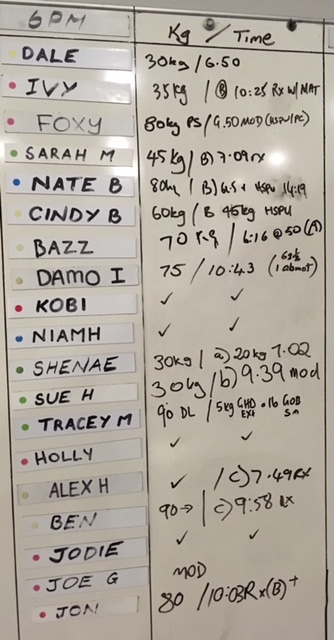 6PM Kg / Time
DALE 30kg / 6.50
IVY 35kg / B 10:25 RX W/ MAT
FOXY 80kg PS / 9.50 MOD (HSPU/PC)
SARAH M 45kg / B) 7.09 RX
NATE B 80kg / B) 6.5 + HSPU 14:19
CINDY B 60kg / B 45kg HSPU
BAZZ 70 Kg / 6:16 @ 50 (A)
DAMO I 75 / 10:43
KOBI ✓ ✓
NIAMH ✓ ✓
SHENAE 30kg / a) 20kg 7.02
SUE H 30kg / b) 9.39 mod
TRACEY M 90 DL / 5kg GHD EXT
HOLLY ✓ ✓
ALEX H ✓ / C) 7.49 RX
BEN 90 → / C) 9:58 RX
JODIE ✓ ✓
JOE G MOD
JON 80 / 10:03 Rx (B) +